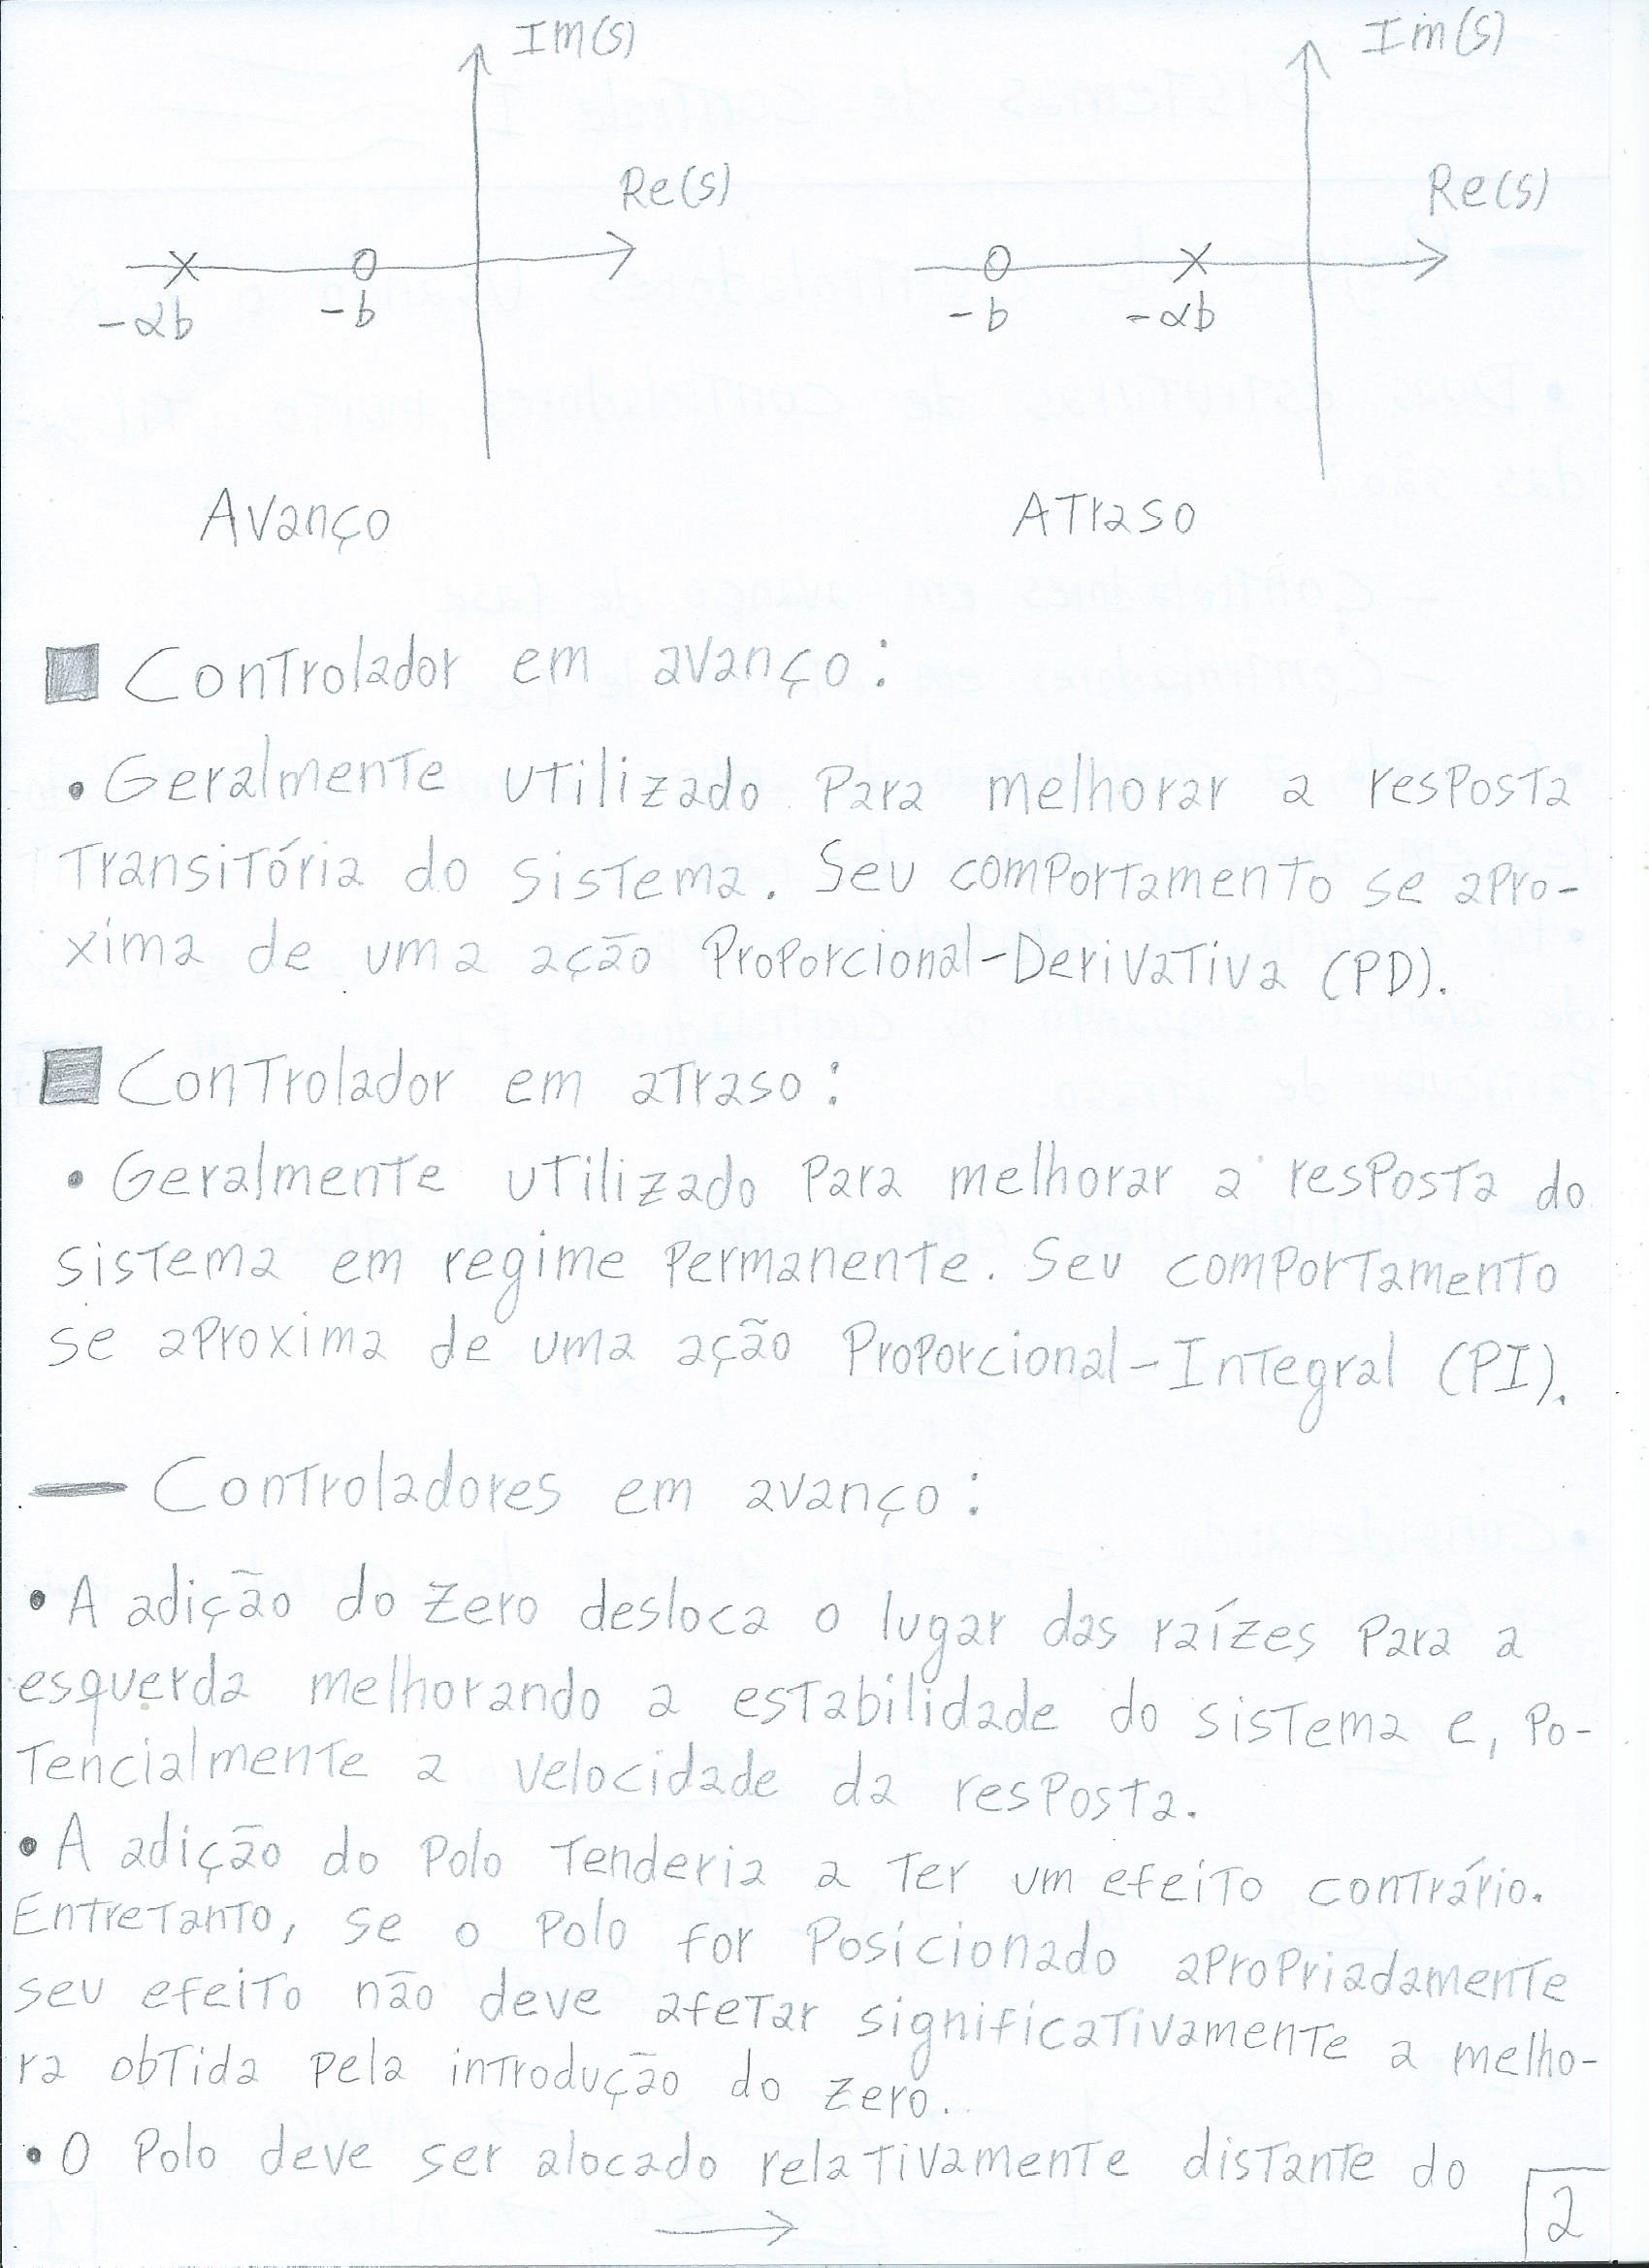 Im(s) Im(s)
Re(s) Re(s)
-αb -b -b -αb
Avanço Atraso
Controlador em avanço:
• Geralmente utilizado para melhorar a resposta
transitória do sistema. Seu comportamento se apro-
xima de uma ação Proporcional-Derivativa (PD).
Controlador em atraso:
• Geralmente utilizado para melhorar a resposta do
sistema em regime permanente. Seu comportamento
se aproxima de uma ação Proporcional-Integral (PI).
— Controladores em avanço:
• A adição do zero desloca o lugar das raízes para a
esquerda melhorando a estabilidade do sistema e, po-
tencialmente a velocidade da resposta.
• A adição do polo tenderia a ter um efeito contrário.
Entretanto, se o polo for posicionado apropriadamente
seu efeito não deve afetar significativamente a melho-
ra obtida pela introdução do zero.
• O polo deve ser alocado relativamente distante do
→
2